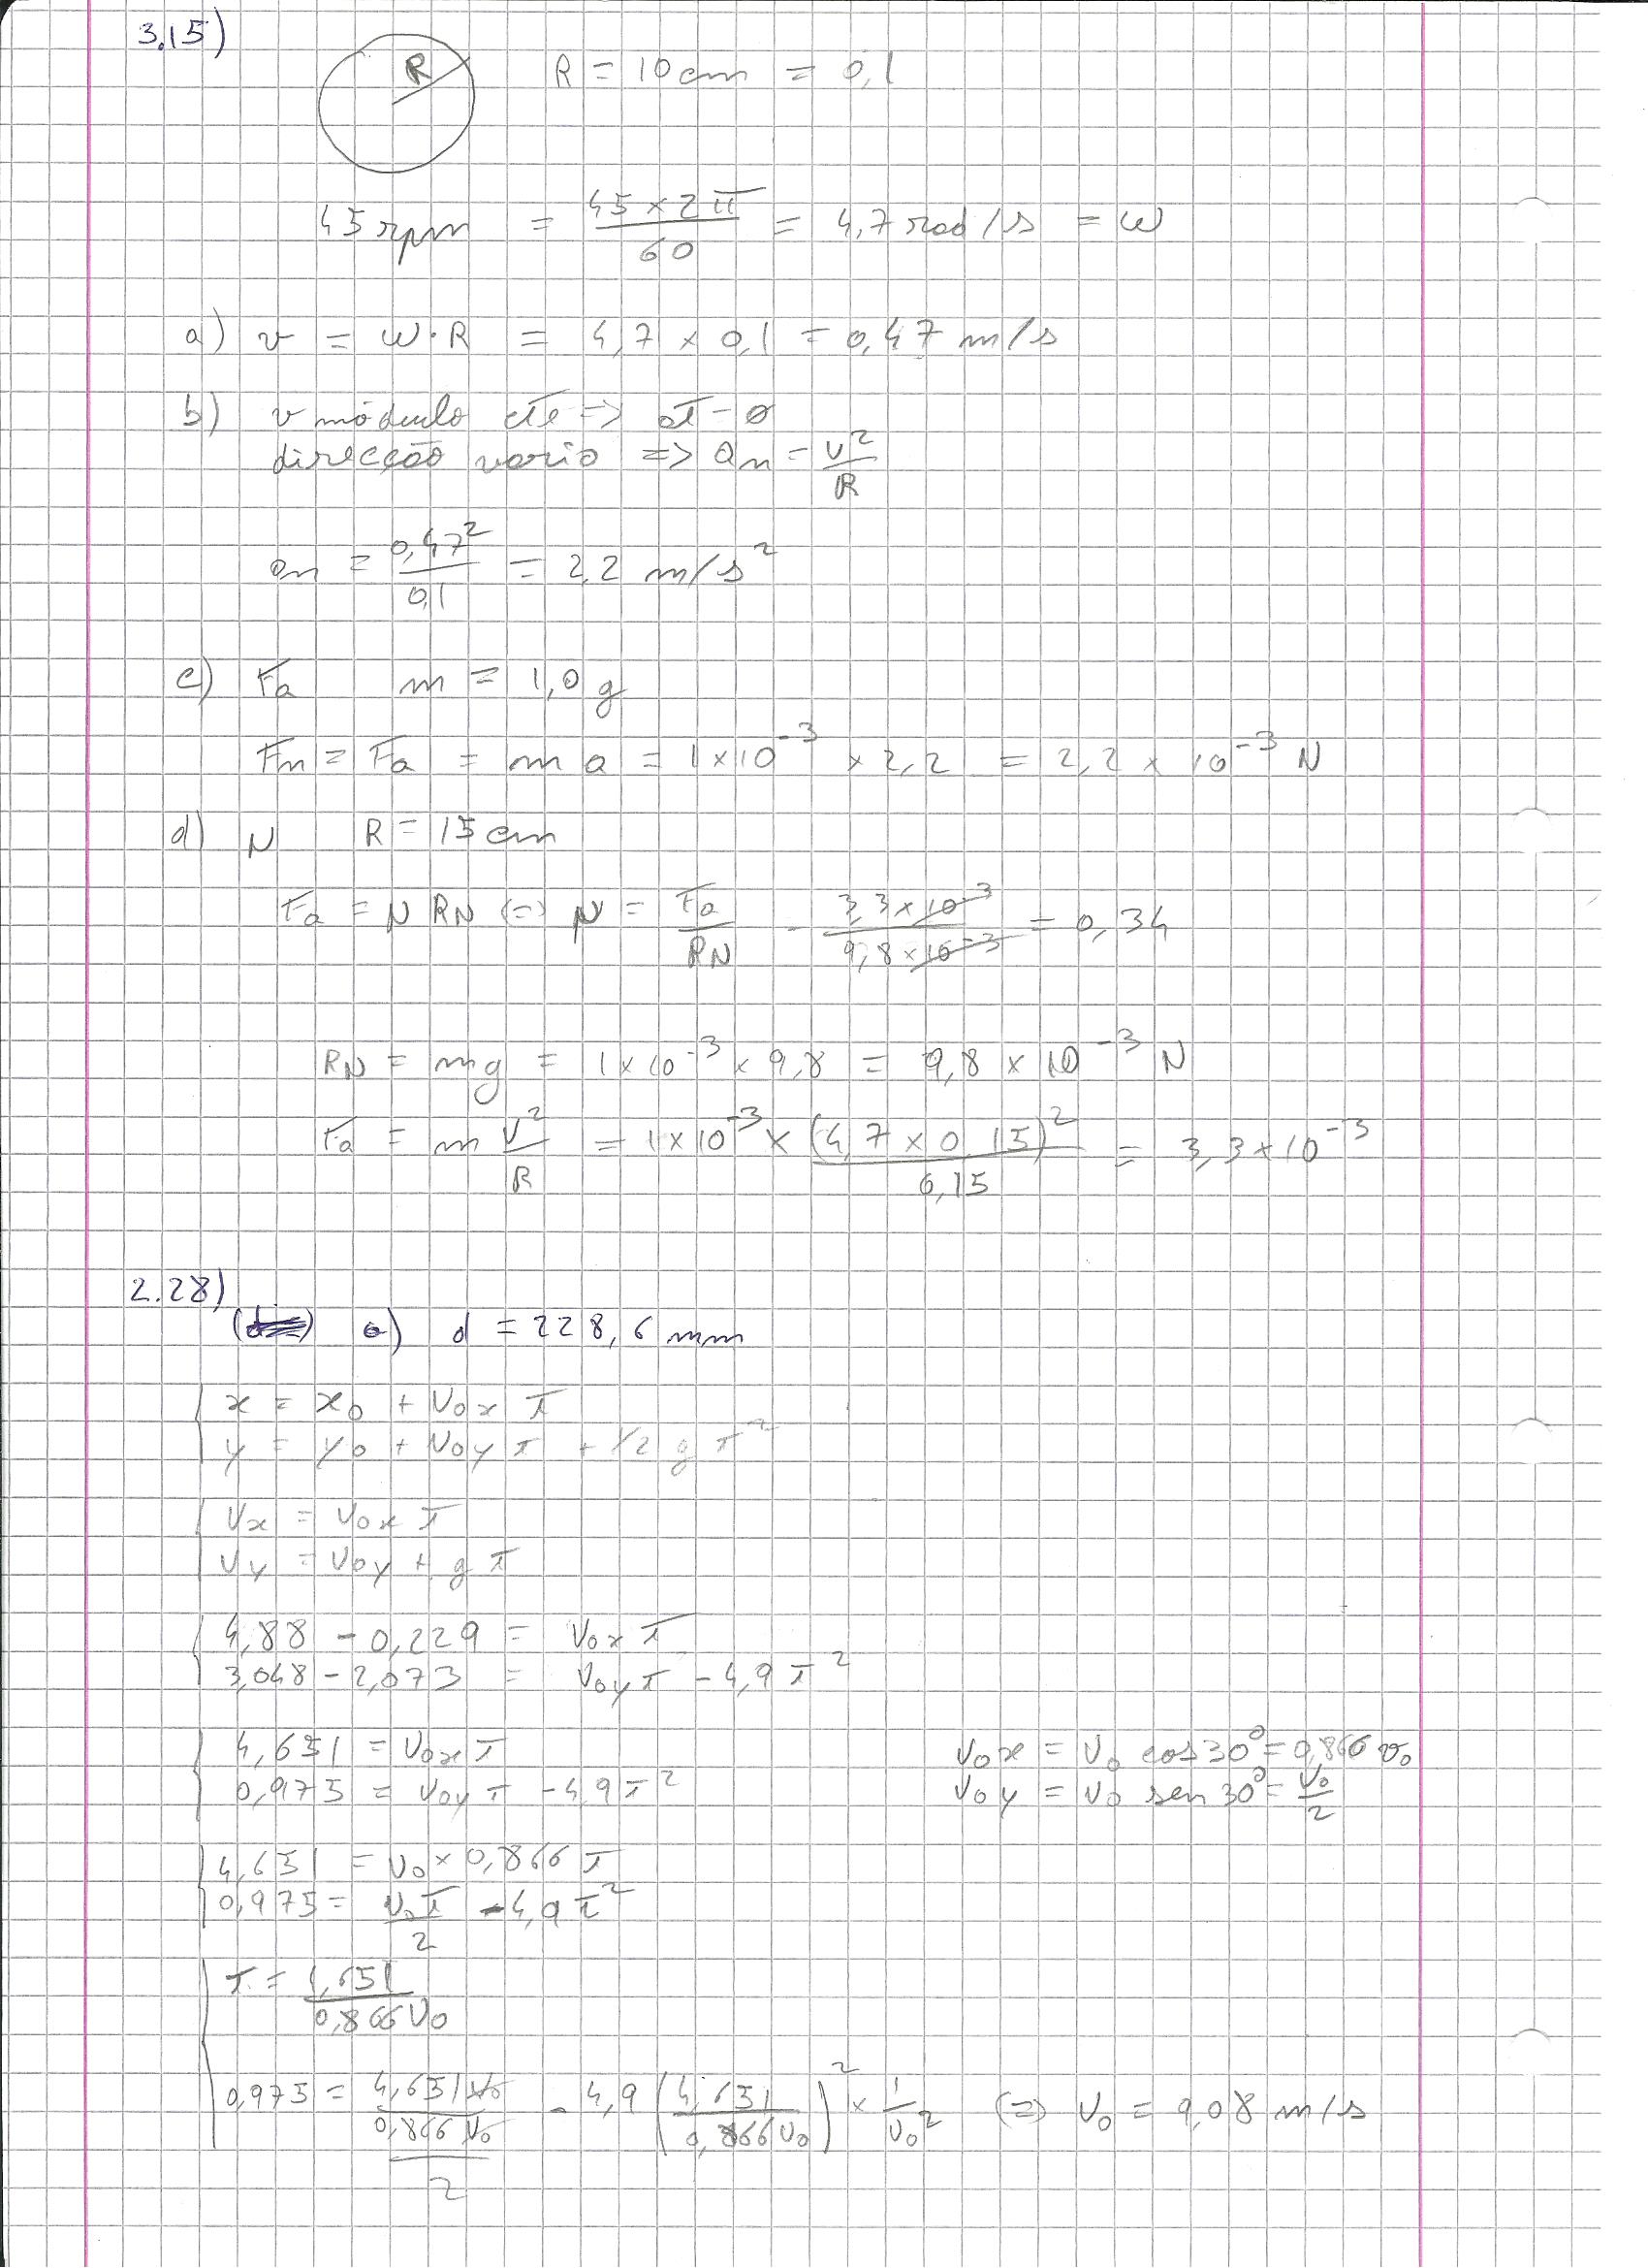 3.15)
R
R = 10 cm = 0,1
45 rpm = 45 × 2π / 60 = 4,7 rad/s = ω
a) v = ω·R = 4,7 × 0,1 = 0,47 m/s
b) v módulo cte => at = 0
direcção varia => an = v² / R
an = 0,47² / 0,1 = 2,2 m/s²
c) Fa m = 1,0 g
Fn = Fa = m a = 1×10⁻³ × 2,2 = 2,2 × 10⁻³ N
d) N R = 15 cm
Fa = N RN (=) N = Fa / RN = 3,3×10⁻³ / 9,8×10⁻³ = 0,34
RN = mg = 1×10⁻³ × 9,8 = 9,8 × 10⁻³ N
Fa = m v² / R = 1×10⁻³ × (4,7 × 0,15)² / 0,15 = 3,3×10⁻³
2.28)
a) d = 228,6 mm
x = x0 + v0x t
y = y0 + v0y t + 1/2 g t²
vx = v0x t
vy = v0y + g t
4,88 - 0,229 = v0x t
3,048 - 2,073 = v0y t - 4,9 t²
4,651 = v0x t
0,975 = v0y t - 4,9 t²
v0x = v0 cos 30° = 0,866 v0
v0y = v0 sen 30° = v0 / 2
4,651 = v0 × 0,866 t
0,975 = v0 t / 2 - 4,9 t²
t = 4,651 / 0,866 v0
0,975 = (4,651 v0 / 0,866 v0) / 2 - 4,9 (4,651 / 0,866 v0)² × 1 / v0² (=) v0 = 9,08 m/s